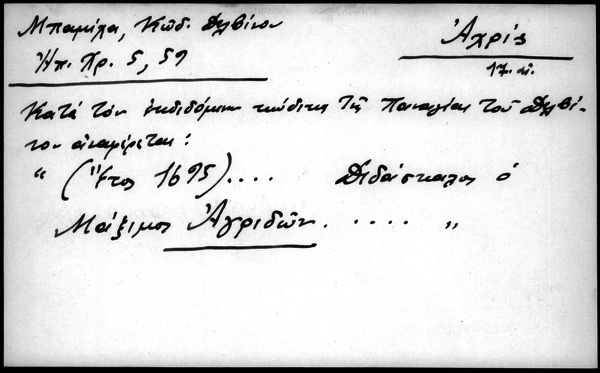 Μπαμίχα, Κώδ. Δελβίνου
Ἠπ. Χρ. 5, 59
Ἀχρίς
17. αἰ.
Κατά τόν ἐκδιδόμενον κώδικα τῆς Παναγίας τοῦ Δελβί-
νου ἀναφέρεται:
“ (Ἔτος 1695).... Διδάσκαλος ὁ
Μάξιμος Ἀγριδῶν. .... „